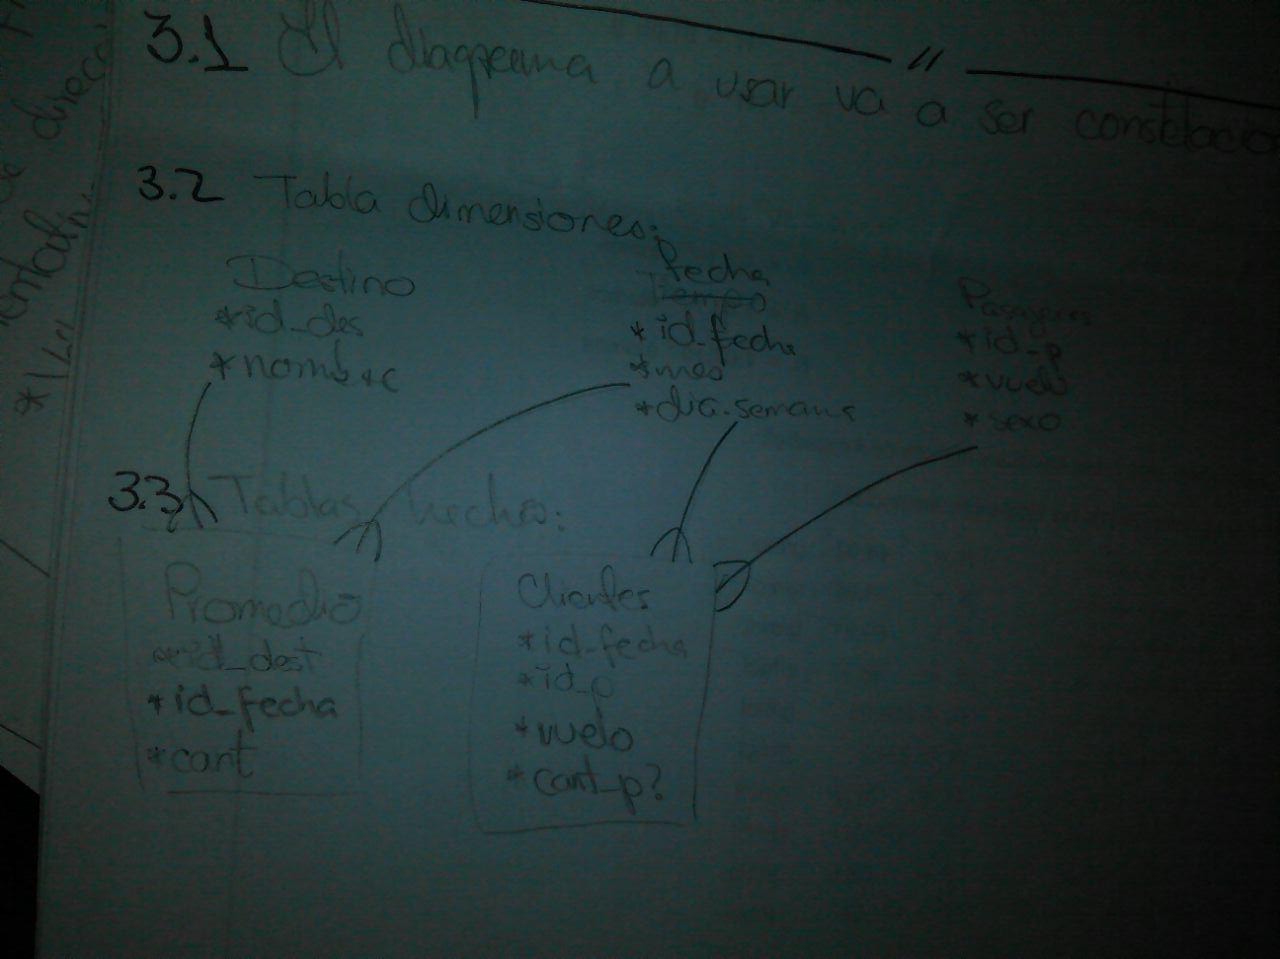 3.1 El diagrama a usar va a ser constelacio
3.2 Tabla dimensiones:
Destino
*id_des
*nombre
fecha
Tiempo
*id_fecha
*mes
*dia.semana
Pasajeros
*id_p
*vuelo
*sexo
3.3 Tablas hechos:
Promedio
*id_dest
*id_fecha
*cant
Clientes
*id_fecha
*id_p
*vuelo
*cant_p?